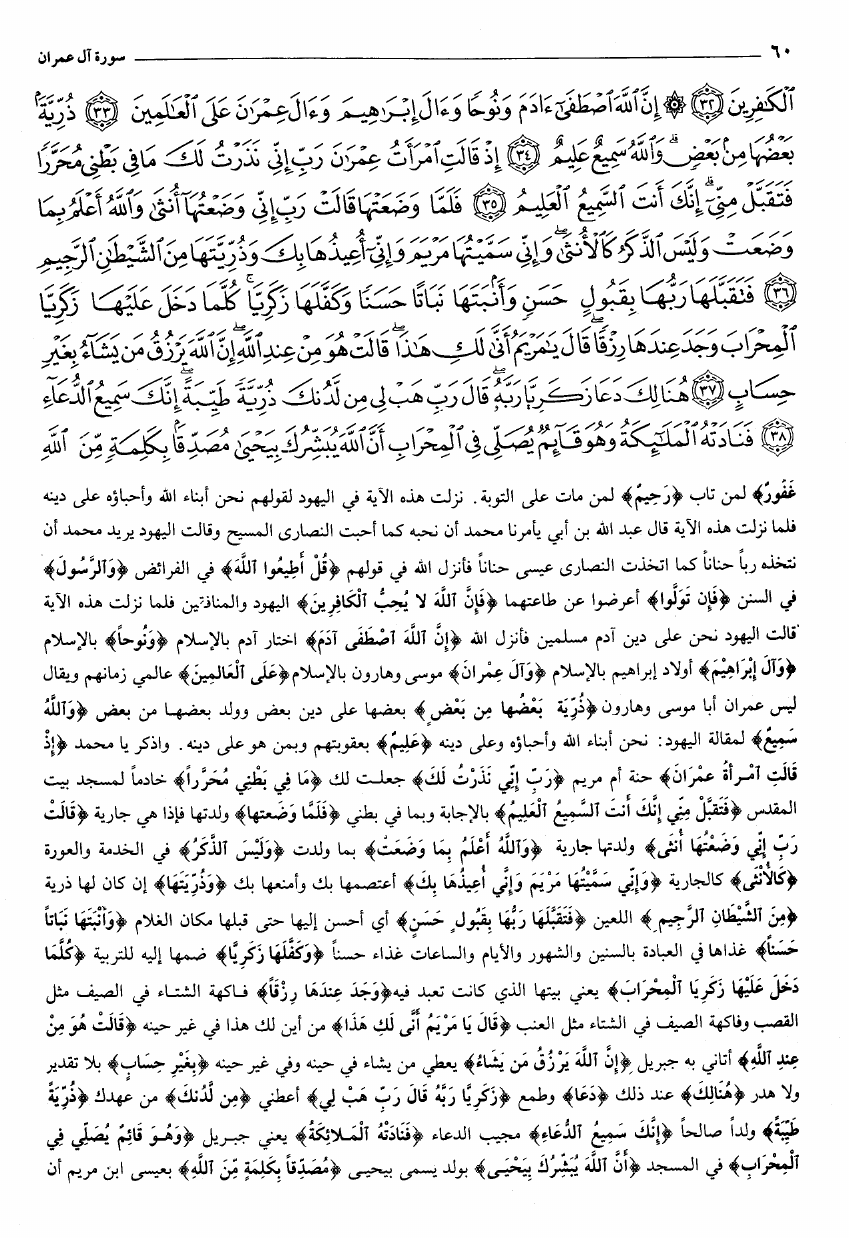 ٦٠ سورة آل عمران
ٱلْكَٰفِرِينَ ﴿٣٢﴾ ۞ إِنَّ ٱللَّهَ ٱصْطَفَىٰٓ ءَادَمَ وَنُوحًا وَءَالَ إِبْرَٰهِيمَ وَءَالَ عِمْرَٰنَ عَلَى ٱلْعَٰلَمِينَ ﴿٣٣﴾ ذُرِّيَّةًۢ
بَعْضُهَا مِنۢ بَعْضٍۗ وَٱللَّهُ سَمِيعٌ عَلِيمٌ ﴿٣٤﴾ إِذْ قَالَتِ ٱمْرَأَتُ عِمْرَٰنَ رَبِّ إِنِّي نَذَرْتُ لَكَ مَا فِي بَطْنِي مُحَرَّرًا
فَتَقَبَّلْ مِنِّيٓۖ إِنَّكَ أَنتَ ٱلسَّمِيعُ ٱلْعَلِيمُ ﴿٣٥﴾ فَلَمَّا وَضَعَتْهَا قَالَتْ رَبِّ إِنِّي وَضَعْتُهَآ أُنثَىٰ وَٱللَّهُ أَعْلَمُ بِمَا
وَضَعَتْ وَلَيْسَ ٱلذَّكَرُ كَٱلْأُنثَىٰۖ وَإِنِّي سَمَّيْتُهَا مَرْيَمَ وَإِنِّيٓ أُعِيذُهَا بِكَ وَذُرِّيَّتَهَا مِنَ ٱلشَّيْطَٰنِ ٱلرَّجِيمِ
﴿٣٦﴾ فَتَقَبَّلَهَا رَبُّهَا بِقَبُولٍ حَسَنٍ وَأَنۢبَتَهَا نَبَاتًا حَسَنًا وَكَفَّلَهَا زَكَرِيَّاۖ كُلَّمَا دَخَلَ عَلَيْهَا زَكَرِيَّا
ٱلْمِحْرَابَ وَجَدَ عِندَهَا رِزْقًاۖ قَالَ يَٰمَرْيَمُ أَنَّىٰ لَكِ هَٰذَاۖ قَالَتْ هُوَ مِنْ عِندِ ٱللَّهِۖ إِنَّ ٱللَّهَ يَرْزُقُ مَن يَشَآءُ بِغَيْرِ
حِسَابٍ ﴿٣٧﴾ هُنَالِكَ دَعَا زَكَرِيَّا رَبَّهُۥۖ قَالَ رَبِّ هَبْ لِي مِن لَّدُنكَ ذُرِّيَّةً طَيِّبَةًۖ إِنَّكَ سَمِيعُ ٱلدُّعَآءِ
﴿٣٨﴾ فَنَادَتْهُ ٱلْمَلَٰٓئِكَةُ وَهُوَ قَآئِمٌ يُصَلِّي فِي ٱلْمِحْرَابِ أَنَّ ٱللَّهَ يُبَشِّرُكَ بِيَحْيَىٰ مُصَدِّقًۢا بِكَلِمَةٍ مِّنَ ٱللَّهِ
غَفُورٌ﴾ لمن تاب ﴿رَحِيمٌ﴾ لمن مات على التوبة. نزلت هذه الآية في اليهود لقولهم نحن أبناء الله وأحباؤه على دينه
فلما نزلت هذه الآية قال عبد الله بن أبي يأمرنا محمد أن نحبه كما أحبت النصارى المسيح وقالت اليهود يريد محمد أن
نتخذه رباً حناناً كما اتخذت النصارى عيسى حناناً فأنزل الله في قولهم ﴿قُلْ أَطِيعُوا ٱللَّهَ﴾ في الفرائض ﴿وَٱلرَّسُولَ﴾
في السنن ﴿فَإِن تَوَلَّوا﴾ أعرضوا عن طاعتهما ﴿فَإِنَّ ٱللَّهَ لا يُحِبُّ ٱلْكَافِرِينَ﴾ اليهود والمنافقين فلما نزلت هذه الآية
قالت اليهود نحن على دين آدم مسلمين فأنزل الله ﴿إِنَّ ٱللَّهَ ٱصْطَفَى آدَمَ﴾ اختار آدم بالإسلام ﴿وَنُوحاً﴾ بالإسلام
﴿وَآلَ إِبْرَاهِيْمَ﴾ أولاد إبراهيم بالإسلام ﴿وَآلَ عِمْرَانَ﴾ موسى وهارون بالإسلام﴿عَلَى ٱلْعَالمِينَ﴾ عالمي زمانهم ويقال
ليس عمران أبا موسى وهارون﴿ذُرِّيَة بَعْضُها مِن بَعْضٍ﴾ بعضها على دين بعض وولد بعضهما من بعض ﴿وَٱللَّهُ
سَمِيعٌ﴾ لمقالة اليهود: نحن أبناء الله وأحباؤه وعلى دينه ﴿عَلِيمٌ﴾ بعقوبتهم وبمن هو على دينه. واذكر يا محمد ﴿إِذْ
قَالَتِ ٱمْرأةُ عمْرَانَ﴾ حنة أم مريم ﴿رَبِّ إِنِّي نَذَرْتُ لَكَ﴾ جعلت لك ﴿مَا فِي بَطْنِي مُحَرَّراً﴾ خادماً لمسجد بيت
المقدس ﴿فَتَقَبَّلْ مِنِّي إِنَّكَ أَنتَ ٱلسَّمِيعُ ٱلْعَلِيمُ﴾ بالإجابة وبما في بطني ﴿فَلَمَّا وَضَعتها﴾ ولدتها فإذا هي جارية ﴿قَالَتْ
رَبِّ إِنِّي وَضَعْتُهَا أُنثَى﴾ ولدتها جارية ﴿وَٱللَّهُ أَعْلَمُ بِمَا وَضَعَتْ﴾ بما ولدت ﴿وَلَيْسَ ٱلذَّكَرُ﴾ في الخدمة والعورة
﴿كَالأُنْثَى﴾ كالجارية ﴿وَإِنِّي سَمَّيْتُهَا مَرْيَمَ وَإِنِّي أُعِيذُهَا بِكَ﴾ أعتصمها بك وأمنعها بك ﴿وَذُرِّيَتَهَا﴾ إن كان لها ذرية
﴿مِنَ ٱلشَّيْطَانِ ٱلرَّجِيمِ﴾ اللعين ﴿فَتَقَبَّلَهَا رَبُّهَا بِقَبُولٍ حَسَنٍ﴾ أي أحسن إليها حتى قبلها مكان الغلام ﴿وَأَنْبَتَهَا نَبَاتاً
حَسَناً﴾ غذاها في العبادة بالسنين والشهور والأيام والساعات غذاء حسناً ﴿وَكَفَّلَهَا زَكَرِيَّا﴾ ضمها إليه للتربية ﴿كُلَّمَا
دَخَلَ عَلَيْهَا زَكَرِيَا ٱلْمِحْرَابَ﴾ يعني بيتها الذي كانت تعبد فيه﴿وَجَدَ عِندَهَا رِزْقَاً﴾ فاكهة الشتاء في الصيف مثل
القصب وفاكهة الصيف في الشتاء مثل العنب ﴿قَالَ يَا مَرْيَمُ أَنَّى لَكِ هَذَا﴾ من أين لك هذا في غير حينه ﴿قَالَتْ هُوَ مِنْ
عِندِ ٱللَّهِ﴾ أتاني به جبريل ﴿إِنَّ ٱللَّهَ يَرْزُقُ مَن يَشَاءُ﴾ يعطي من يشاء في حينه وفي غير حينه ﴿بِغَيْرِ حِسَابٍ﴾ بلا تقدير
ولا هدر ﴿هُنَالِكَ﴾ عند ذلك ﴿دَعَا﴾ وطمع ﴿زَكَرِيَّا رَبَّهُ قَالَ رَبِّ هَبْ لِي﴾ أعطني ﴿مِن لَّدُنكَ﴾ من عهدك ﴿ذُرِّيَةً
طَيِّبَةً﴾ ولداً صالحاً ﴿إِنَّكَ سَمِيعُ ٱلدُّعَاءِ﴾ مجيب الدعاء ﴿فَنَادَتْهُ ٱلْمَلائِكَةُ﴾ يعني جبريل ﴿وَهُوَ قَائِمٌ يُصَلِّي فِي
ٱلْمِحْرَابِ﴾ في المسجد ﴿أَنَّ ٱللَّهَ يُبَشِّرُكَ بِيَحْيَى﴾ بولد يسمى بيحيى ﴿مُصَدِّقاً بِكَلِمَةٍ مِّنَ ٱللَّهِ﴾ بعيسى ابن مريم أن